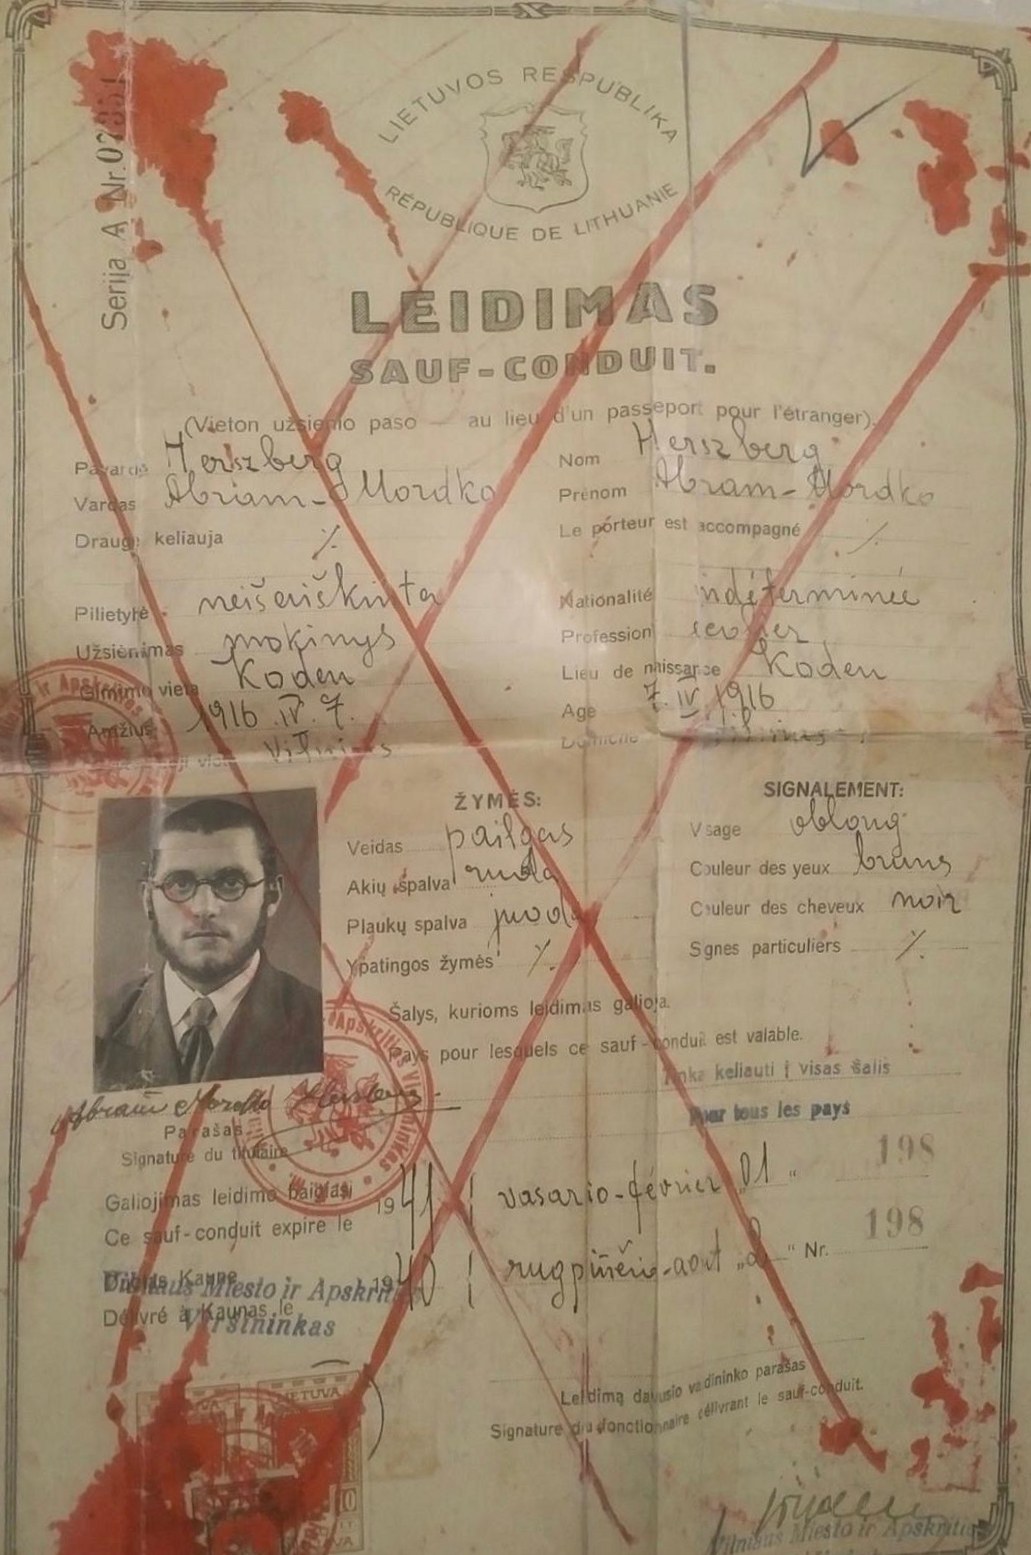 LIETUVOS RESPUBLIKA
RÉPUBLIQUE DE LITHUANIE
Serija A Nr.
LEIDIMAS
SAUF-CONDUIT.
(Vieton užsienio paso — au lieu d'un passeport pour l'étranger).
Pavardė Herszberg
Nom Herszberg
Vardas Abram-Mordko
Prénom Abram-Mordko
Draugė keliauja ./.
Le porteur est accompagné ./.
Pilietybė neišaiškinta
Nationalité indéterminée
Užsiėmimas mokinys
Profession
Gimimo vieta Koden
Lieu de naissance Koden
Amžius 1916.IV.7.
Age 7.IV.1916
Vilnius
Domicile Vilnius
ŽYMĖS:
SIGNALEMENT:
Veidas pailgas
Visage oblong
Akių spalva ruda
Couleur des yeux bruns
Plaukų spalva juoda
Couleur des cheveux noir
Ypatingos žymės ./.
Signes particuliers ./.
Šalys, kurioms leidimas galioja.
Pays pour lesquels ce sauf-conduit est valable.
Tinka keliauti į visas šalis
Pour tous les pays
Abram Mordko Herszberg
Parašas
Signature du titulaire
Galiojimas leidimo baigiasi
Ce sauf-conduit expire le
1941 vasario-février „01“
198
Duotas Kaune
Délivré à Kaunas le
1940 rugpiučio-août „2“ Nr. 198
Vilniaus Miesto ir Apskrities
Viršininkas
Leidimą davusio valdininko parašas
Signature du fonctionnaire délivrant le sauf-conduit.
LIETUVA
Vilniaus Miesto ir Apskrities